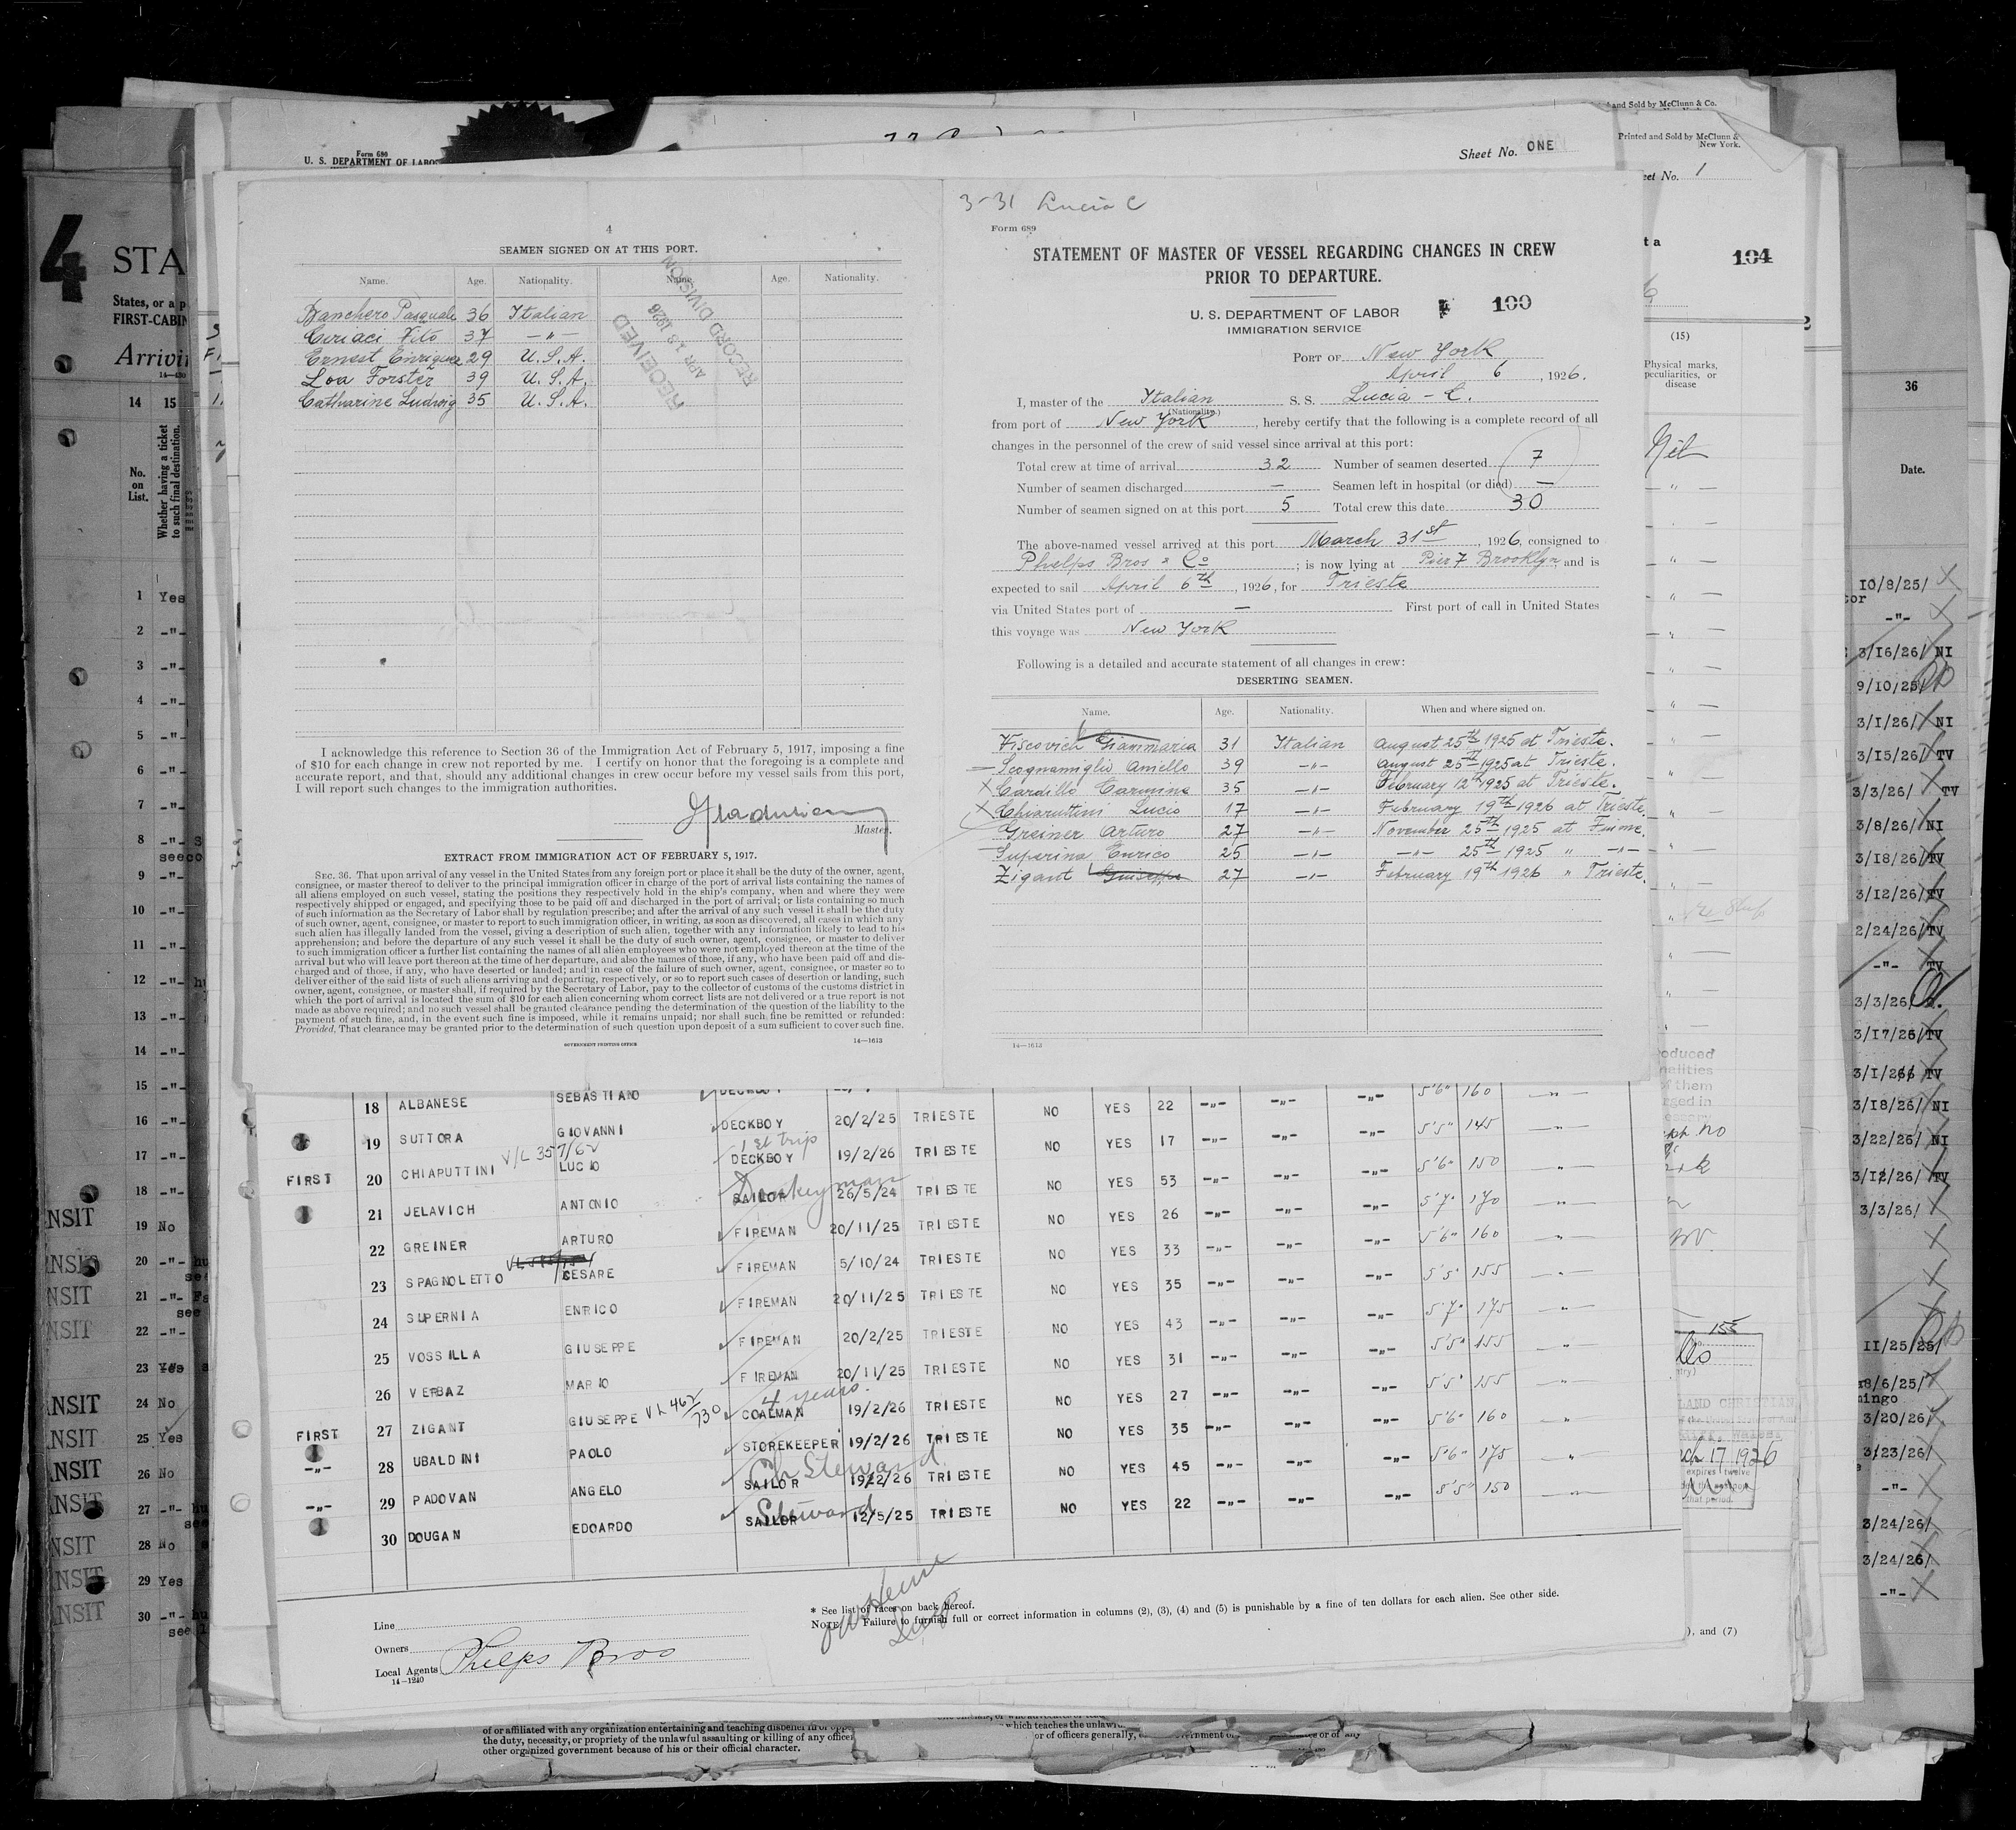 and Sold by McClunn & Co.
Printed and Sold by McClunn &
New York.
Form 680
U. S. DEPARTMENT OF LABOR
Sheet No. ONE
eet No. 1
104
4
STA
States, or a p
FIRST-CABIN
Arrivi
14—430
14 15
No.
on
List.
Whether having a ticket
to such final destination.
4
SEAMEN SIGNED ON AT THIS PORT.
Name. Age. Nationality. Name. Age. Nationality.
Banchero Pasquale 36 Italian
Ciriaci Vito 37 —"—
Ernest Enriquez 29 U.S.A.
Loa Forster 39 U.S.A.
Catharine Ludwig 35 U.S.A.
RECEIVED
APR 13 1926
RECORD DIVISION
I acknowledge this reference to Section 36 of the Immigration Act of February 5, 1917, imposing a fine
of $10 for each change in crew not reported by me. I certify on honor that the foregoing is a complete and
accurate report, and that, should any additional changes in crew occur before my vessel sails from this port,
I will report such changes to the immigration authorities.
Master.
EXTRACT FROM IMMIGRATION ACT OF FEBRUARY 5, 1917.
SEC. 36. That upon arrival of any vessel in the United States from any foreign port or place it shall be the duty of the owner, agent,
consignee, or master thereof to deliver to the principal immigration officer in charge of the port of arrival lists containing the names of
all aliens employed on such vessel, stating the positions they respectively hold in the ship's company, when and where they were
respectively shipped or engaged, and specifying those to be paid off and discharged in the port of arrival; or lists containing so much
of such information as the Secretary of Labor shall by regulation prescribe; and after the arrival of any such vessel it shall be the duty
of such owner, agent, consignee, or master to report to such immigration officer, in writing, as soon as discovered, all cases in which any
such alien has illegally landed from the vessel, giving a description of such alien, together with any information likely to lead to his
apprehension; and before the departure of any such vessel it shall be the duty of such owner, agent, consignee, or master to deliver
to such immigration officer a further list containing the names of all alien employees who were not employed thereon at the time of the
arrival but who will leave port thereon at the time of her departure, and also the names of those, if any, who have been paid off and dis-
charged and of those, if any, who have deserted or landed; and in case of the failure of such owner, agent, consignee, or master so to
deliver either of the said lists of such aliens arriving and departing, respectively, or so to report such cases of desertion or landing, such
owner, agent, consignee, or master shall, if required by the Secretary of Labor, pay to the collector of customs of the customs district in
which the port of arrival is located the sum of $10 for each alien concerning whom correct lists are not delivered or a true report is not
made as above required; and no such vessel shall be granted clearance pending the determination of the question of the liability to the
payment of such fine, and, in the event such fine is imposed, while it remains unpaid; nor shall such fine be remitted or refunded:
Provided, That clearance may be granted prior to the determination of such question upon deposit of a sum sufficient to cover such fine.
GOVERNMENT PRINTING OFFICE
14—1613
3-31 Lucia C
Form 689
STATEMENT OF MASTER OF VESSEL REGARDING CHANGES IN CREW
PRIOR TO DEPARTURE.
U. S. DEPARTMENT OF LABOR
IMMIGRATION SERVICE
100
PORT OF New York
April 6, 1926.
I, master of the Italian S. S. Lucia - C.
(Nationality.)
from port of New York, hereby certify that the following is a complete record of all
changes in the personnel of the crew of said vessel since arrival at this port:
Total crew at time of arrival 32 Number of seamen deserted 7
Number of seamen discharged — Seamen left in hospital (or died) —
Number of seamen signed on at this port 5 Total crew this date 30
The above-named vessel arrived at this port March 31st, 1926, consigned to
Phelps Bros & Co; is now lying at Pier 7 Brooklyn, and is
expected to sail April 6th, 1926, for Trieste
via United States port of — First port of call in United States
this voyage was New York
Following is a detailed and accurate statement of all changes in crew:
DESERTING SEAMEN.
Name. Age. Nationality. When and where signed on.
Viscovich Gianmaria 31 Italian August 25th 1925 at Trieste.
Scognamiglio Aniello 39 —"— August 25th 1925 at Trieste.
Cardillo Carmine 35 —"— February 12th 1925 at Trieste.
Chiaruttini Lucio 17 —"— February 19th 1926 at Trieste.
Greiner Arturo 27 —"— November 25th 1925 at Fiume.
Superina Enrico 25 —"— —"— 25th 1925 " —"—
Zigant Giuseppe 27 —"— February 19th 1926 " Trieste.
14—1613
(15)
Physical marks,
peculiarities, or
disease
Nil
36
Date.
1 Yes
2 -"-
3 -"-
4 -"-
5 -"-
6 -"-
7 -"-
8 -"-
9 -"-
10 -"-
11 -"-
12 -"-
13 -"-
14 -"-
15 -"-
16 -"-
17 -"-
18 -"-
19 No
20 -"-
21 -"-
22 -"-
23 Yes
24 No
25 Yes
26 No
27 -"-
28 No
29 Yes
30 -"-
10/8/25/
-"-
3/16/26/ NI
9/10/25/
3/1/26/ NI
3/15/26/ TV
3/3/26/ TV
3/8/26/ NI
3/18/26/ TV
3/12/26/ TV
2/24/26/ TV
-"- TV
3/3/26/
3/17/26/ TV
3/1/26/ TV
3/18/26/ NI
3/22/26/ NI
3/12/26/ TV
3/3/26/
11/25/25/
8/6/25/
3/20/26/
3/23/26/
-"-
3/24/26/
3/24/26/
-"-
18 ALBANESE SEBASTIANO DECKBOY NO YES 22 -"- -"- -"- 5'6" 160
19 SUTTORA GIOVANNI DECKBOY 20/2/25 TRIESTE NO YES 17 -"- -"- -"- 5'5" 145
1st trip
FIRST 20 CHIAPUTTINI LUCIO DECKBOY 19/2/26 TRIESTE NO YES 53 -"- -"- -"- 5'6" 150
Donkeyman
21 JELAVICH ANTONIO SAILOR 26/5/24 TRIESTE NO YES 26 -"- -"- -"- 5'7" 170
22 GREINER ARTURO FIREMAN 20/11/25 TRIESTE NO YES 33 -"- -"- -"- 5'6" 160
23 SPAGNOLETTO CESARE FIREMAN 5/10/24 TRIESTE NO YES 35 -"- -"- -"- 5'5" 155
24 SUPERNIA ENRICO FIREMAN 20/11/25 TRIESTE NO YES 43 -"- -"- -"- 5'7" 175
25 VOSSILLA GIUSEPPE FIREMAN 20/2/25 TRIESTE NO YES 31 -"- -"- -"- 5'5" 155
26 VERBAZ MARIO FIREMAN 20/11/25 TRIESTE NO YES 27 -"- -"- -"- 5'5" 155
4 years.
FIRST 27 ZIGANT GIUSEPPE COALMAN 19/2/26 TRIESTE NO YES 35 -"- -"- -"- 5'6" 160
-"- 28 UBALDINI PAOLO STOREKEEPER 19/2/26 TRIESTE NO YES 45 -"- -"- -"- 5'6" 175
Ch Steward
-"- 29 PADOVAN ANGELO SAILOR 19/2/26 TRIESTE NO YES 22 -"- -"- -"- 5'5" 150
Steward
30 DOUGAN EDOARDO SAILOR 12/5/25 TRIESTE
Line
Owners
Local Agents Phelps Bros
14—1240
* See list of races on back hereof.
NOTE.—Failure to furnish full or correct information in columns (2), (3), (4) and (5) is punishable by a fine of ten dollars for each alien. See other side.
), and (7)
of or affiliated with any organization entertaining and teaching disbelief in or oppo
the duty, necessity, or propriety of the unlawful assaulting or killing of any officer
other organized government because of his or their official character.
which teaches the unlawfu
or of officers generally,